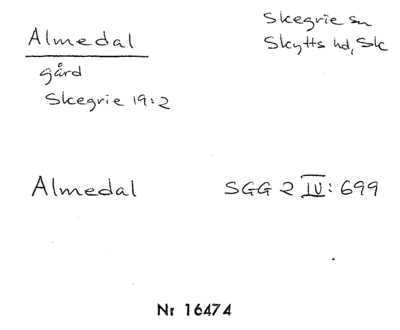 Almedal
gård
Skegrie 19:2
Skegrie sn
Skytts hd, Sk
Almedal
SGG 2 IV: 699
Nr 16474